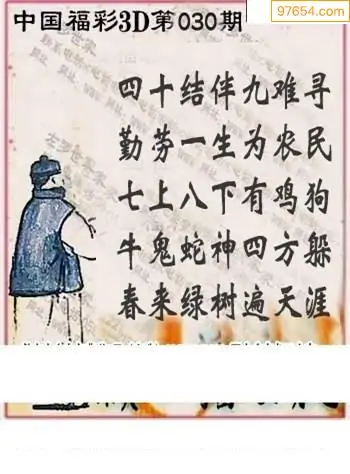 97654.com
中国福彩3D第030期
四十结伴九难寻
勤劳一生为农民
七上八下有鸡狗
牛鬼蛇神四方躲
春来绿树遍天涯